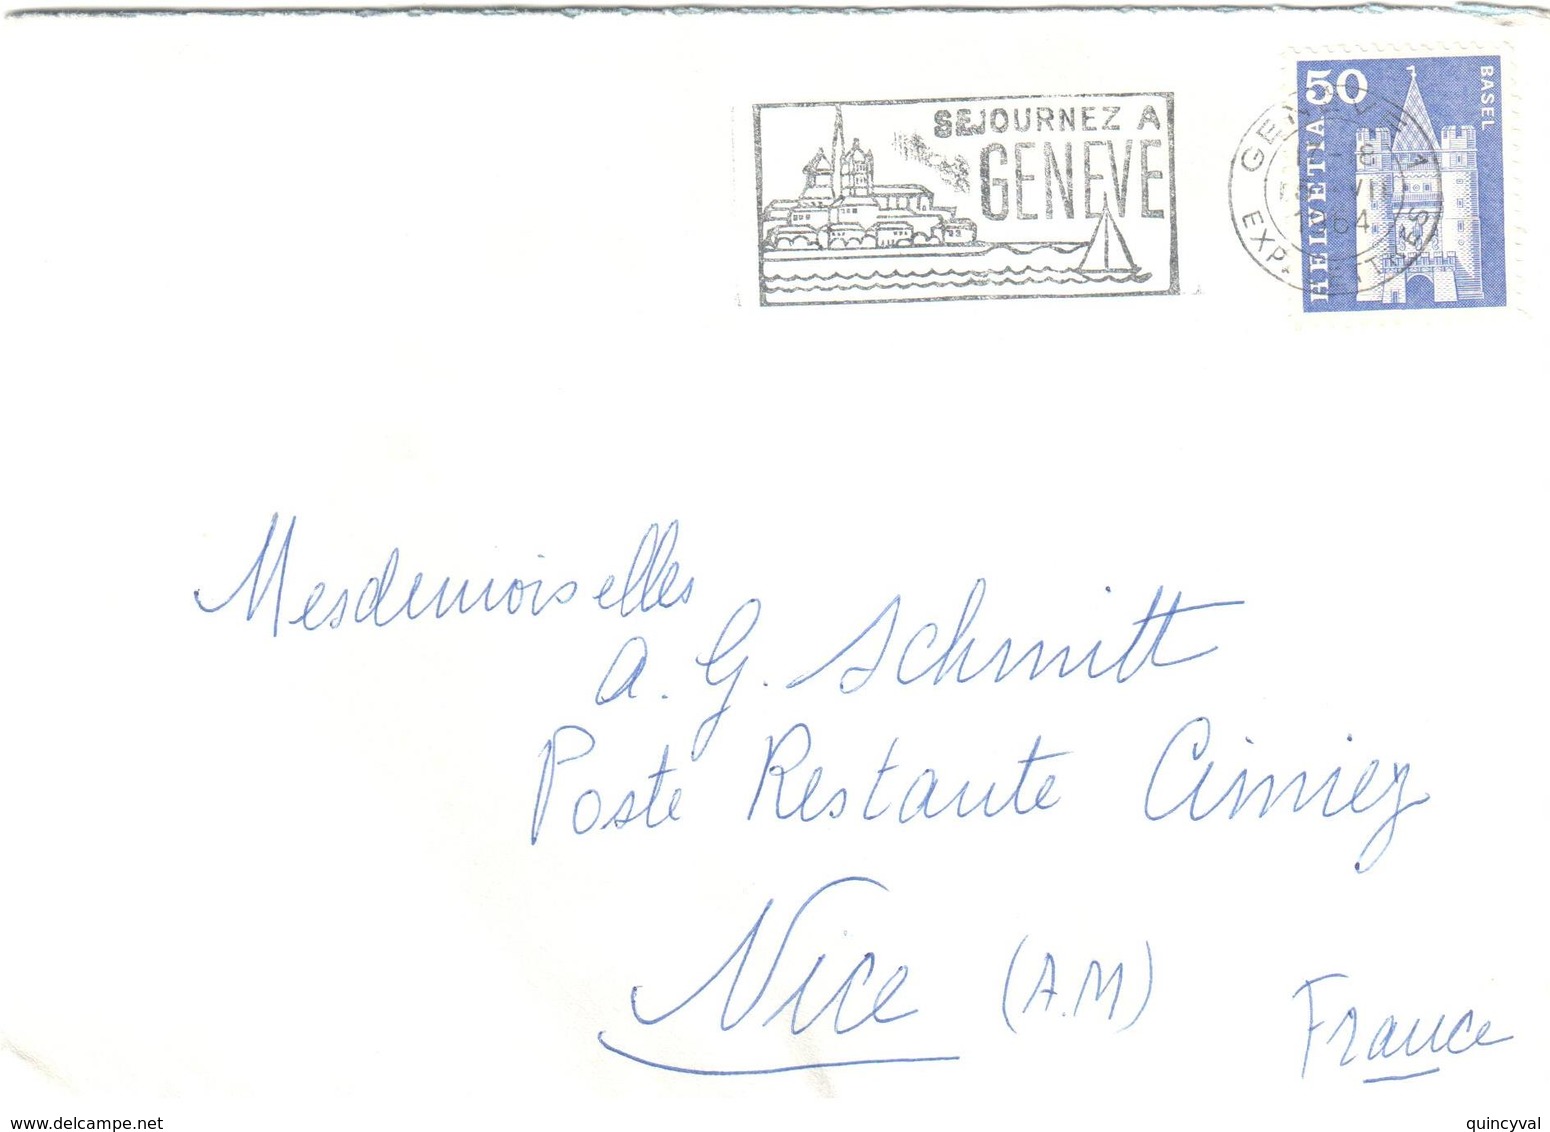 SEJOURNEZ A
GENEVE
50
HELVETIA
BASEL
EXP.
1964
Mesdemoiselles
A. G. Schmitt
Poste Restante Cimiez
Nice (A.M)
France
www.delcampe.net
quincyval